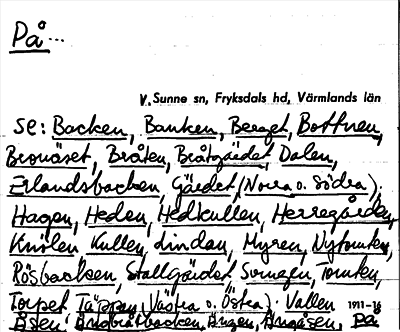 På...
V. Sunne sn, Fryksdals hd, Värmlands län
se: Backen, Banken, Berget, Bottnen,
Bronäset, Bråten, Bråtgärdet, Dalen,
Erlandsbacken, Gärdet (Norra o. Södra),
Hagen, Heden, Hedkullen, Herregården,
Knölen, Kullen, Lindan, Myren, Nytomten,
Rösbacken, Stallgärdet, Svingeln, Tomten,
Torpet, Täppan (Västra o. Östra), Vallen 1911-16
Åsen, Ängen, Ängåsen, På